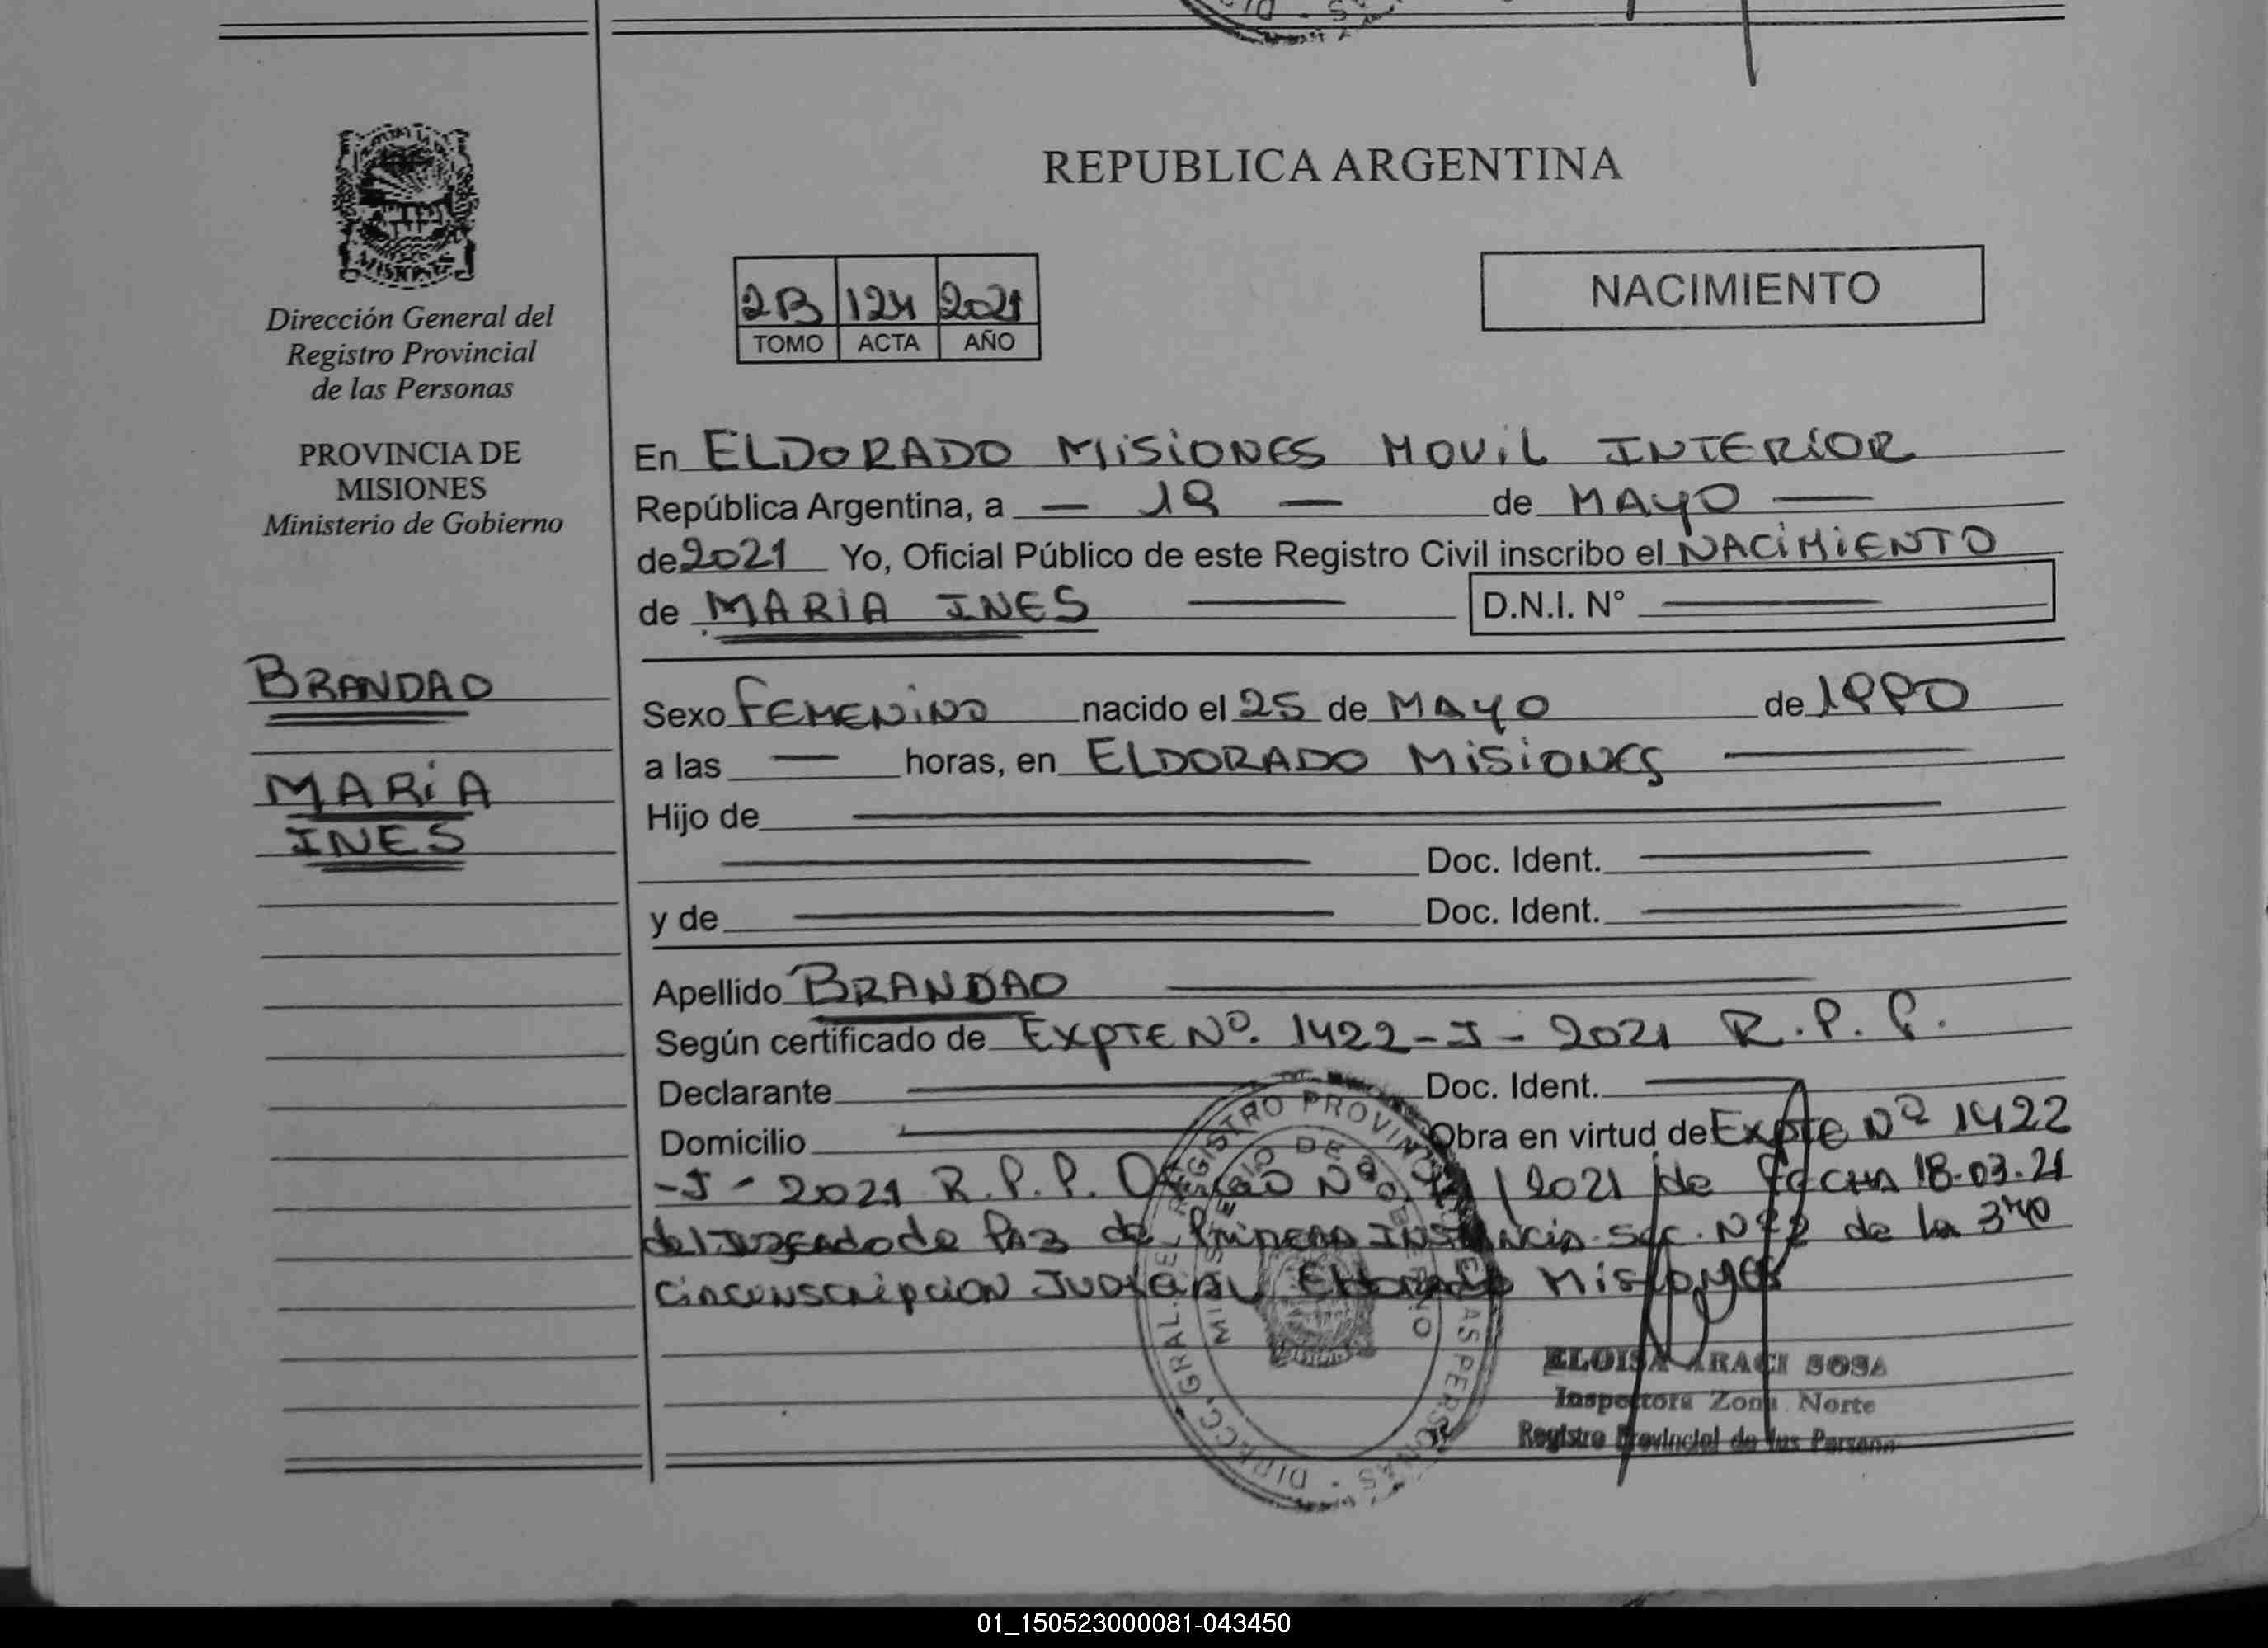 REPUBLICA ARGENTINA
Dirección General del
Registro Provincial
de las Personas
PROVINCIA DE
MISIONES
Ministerio de Gobierno
BRANDAO
MARiA
INES
2B 124 2021
TOMO ACTA AÑO
NACIMIENTO
En ELDORADO MiSiONES MOViL INTERiOR
República Argentina, a — 19 — de MAYO —
de 2021 Yo, Oficial Público de este Registro Civil inscribo el NACiMiENTO
de MARiA INES — D.N.I. N° —
Sexo FEMENiNO nacido el 25 de MAYO de 1990
a las — horas, en ELDORADO MiSiONES —
Hijo de —
— Doc. Ident. —
y de — Doc. Ident. —
Apellido BRANDAO —
Según certificado de EXPTE Nº. 1422-J-2021 R.P.P.
Declarante — Doc. Ident. —
Domicilio — Obra en virtud de Expte Nº 1422
-J-2021 R.P.P. Oficio Nº /2021 de fecha 18-03-21
del Juzgado de Paz de Primera Instancia Sec. Nº2 de la 3ra
Circunscripcion Judicial Eldorado Misiones
REGISTRO PROVINCIAL DE LAS PERSONAS - DIRECC. GRAL.
MINISTERIO DE GOBIERNO
ELOISA ARACI SOSA
Inspectora Zona Norte
Registro Provincial de las Persona
01_150523000081-043450